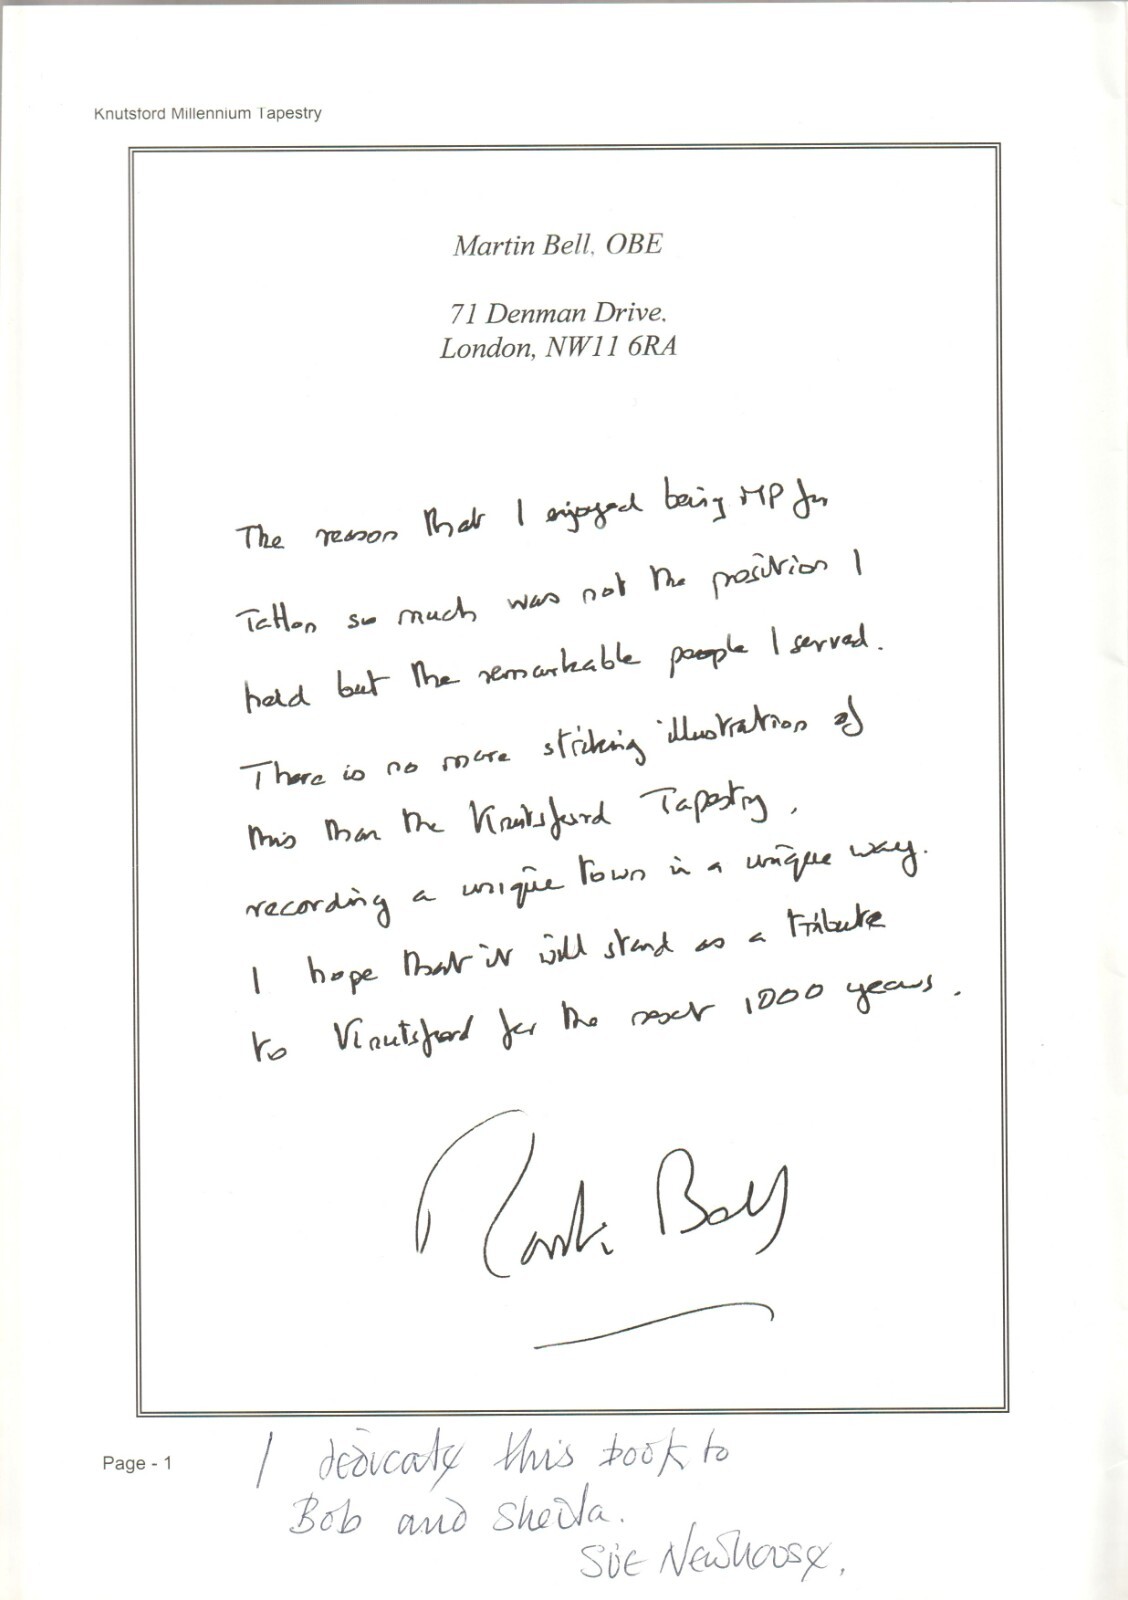 Knutsford Millennium Tapestry
Martin Bell, OBE
71 Denman Drive,
London, NW11 6RA
The reason that I enjoyed being MP for
Tatton so much was not the position I
held but the remarkable people I served.
There is no more striking illustration of
this than the Knutsford Tapestry,
recording a unique town in a unique way.
I hope that it will stand as a tribute
to Knutsford for the next 1000 years.
Martin Bell
Page - 1
I dedicate this book to
Bob and Sheila.
Sue Newhouse.